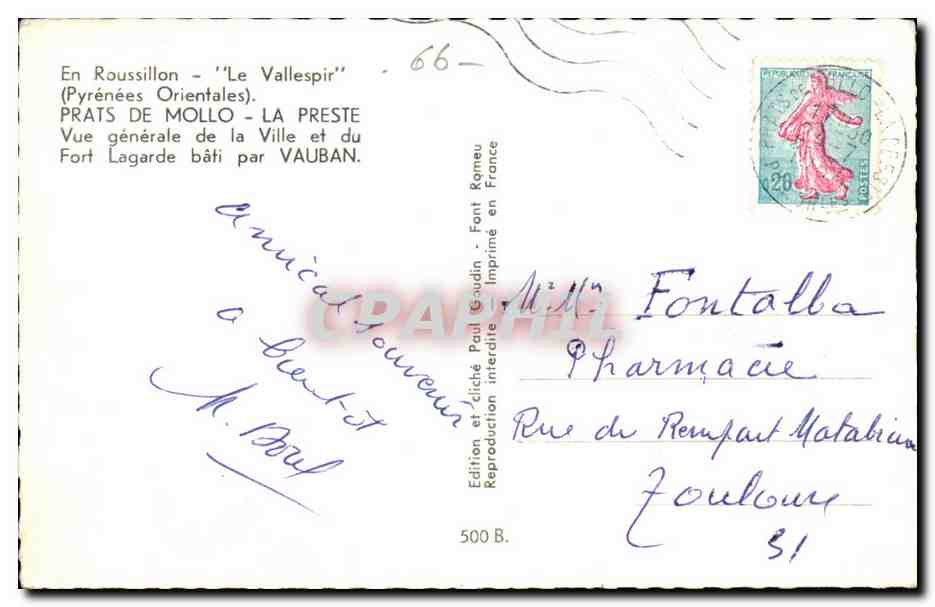 66 -
En Roussillon - "Le Vallespir"
(Pyrénées Orientales).
PRATS DE MOLLO - LA PRESTE
Vue générale de la Ville et du
Fort Lagarde bâti par VAUBAN.
REPUBLIQUE FRANÇAISE
0,20
POSTES
amical souvenir
a bientôt
M. Borel
Edition et cliché Paul Gaudin - Font Romeu
Reproduction interdite - Imprimé en France
500 B.
CPAPHIL
Fontalba
Pharmacie
Rue du Rempart Matabiau
Toulouse
31